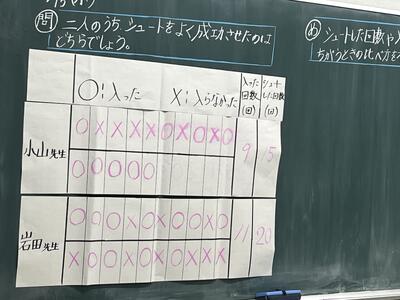 問 二人のうち、シュートをよく成功させたのは
どちらでしょう。
め シュートした回数や入
ちがうときの比べ方を
○：入った ×：入らなかった
入った回数(回)
シュートした回数(回)
小山先生
○ × × × × ○ × ○ × ○
○ ○ ○ ○ ○
9 15
岩田先生
○ ○ ○ × ○ × ○ ○ ○ ×
× ○ ○ ○ × ○ × × × ×
11 20